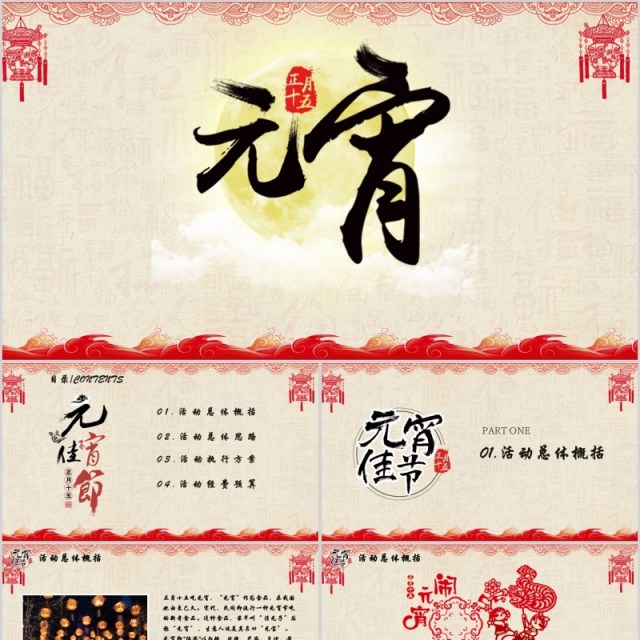 元宵
正月
十五
目录/CONTENTS
元宵佳節
正月十五
01.活动总体概括
02.活动总体思路
03.活动执行方案
04.活动经费预算
元宵佳节
PART ONE
01.活动总体概括
活动总体概括
正月十五吃元宵，“元宵”作为食品，在我国
也由来已久。宋代，民间即流行一种元宵节吃
的新奇食品。这种食品，最早叫“浮元子”后
称“元宵”，生意人还美其名曰“元宝”。
活动总体概括
闹元宵